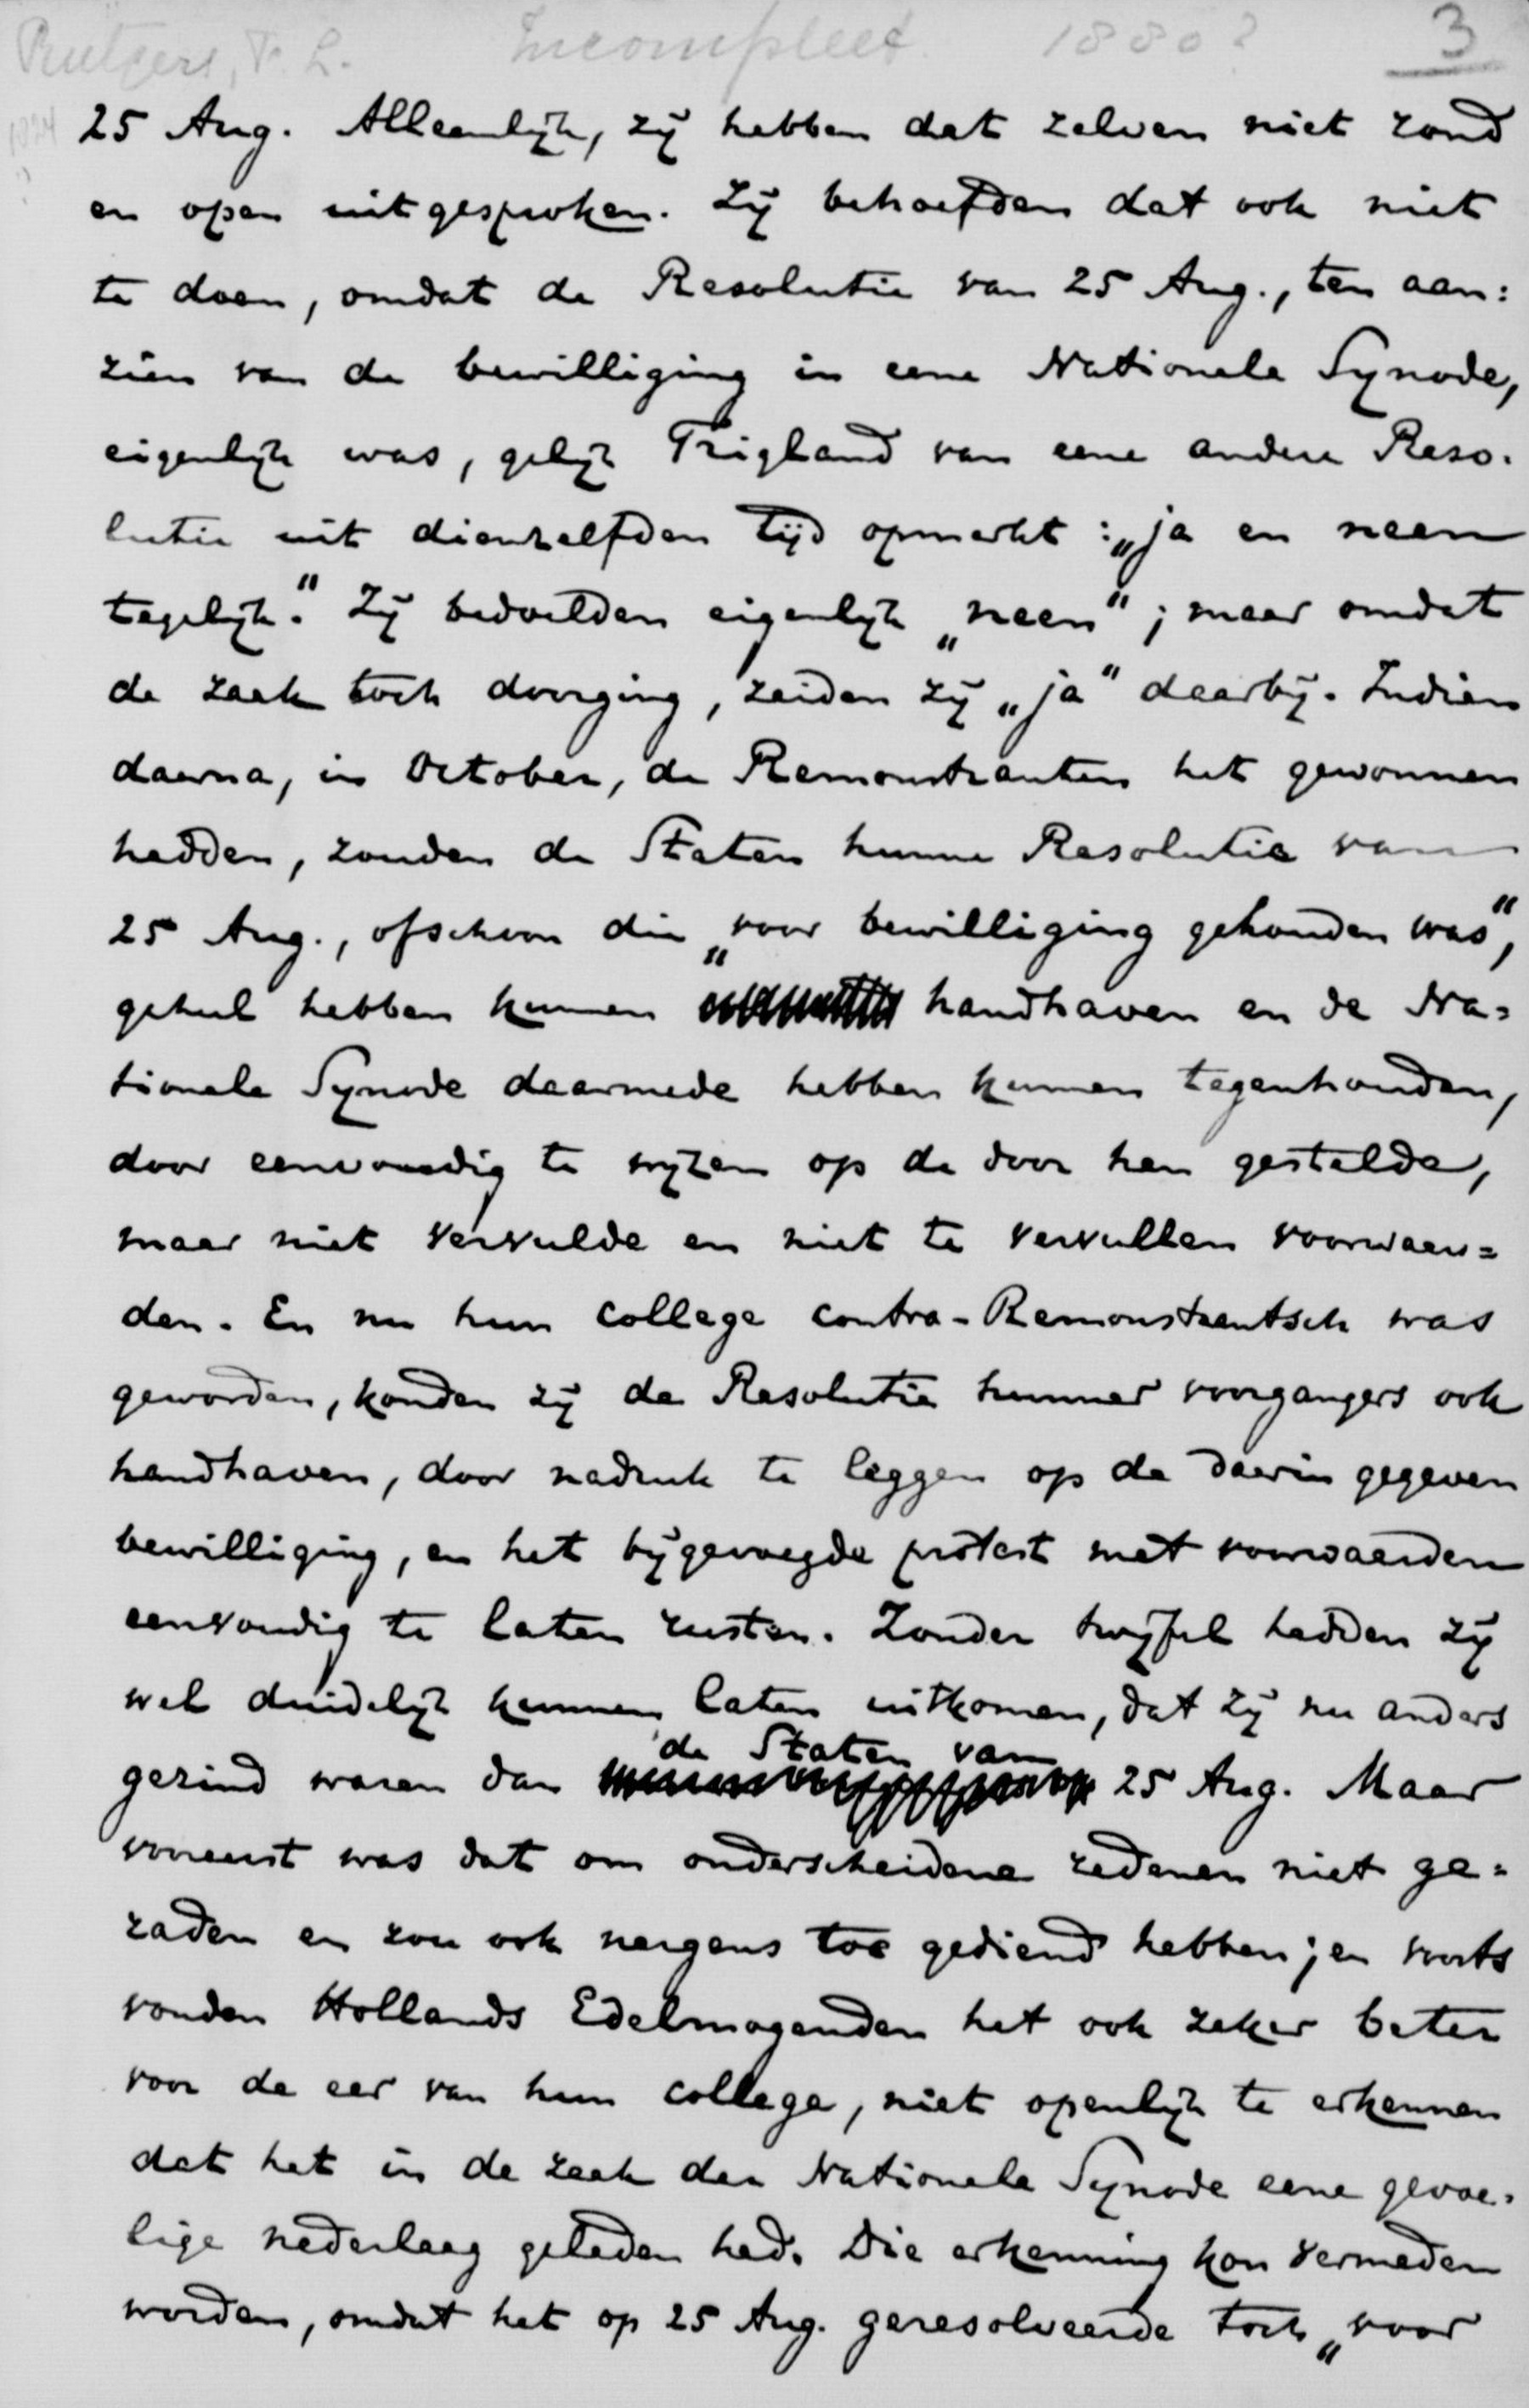 Rutgers, F. L. Incompleet. 1880? 3
25 Aug. Alleenlijk, zij hebben dat zelven niet rond
en open uitgesproken. Zij behoefden dat ook niet
te doen, omdat de Resolutie van 25 Aug., ten aan:
zien van de bewilliging in eene Nationale Synode,
eigenlijk was, gelijk Trigland van eene andere Reso-
lutie uit dienzelfden tijd opmerkt: „ja en neen
tegelijk." Zij bedoelden eigenlijk „neen"; maar omdat
de zaak toch doorging, zeiden zij „ja" daarbij. Indien
daarna, in October, de Remonstranten het gewonnen
hadden, zouden de Staten hunne Resolutie van
25 Aug., ofschoon die „voor bewilliging gehouden was",
geheel hebben kunnen handhaven en de Na=
tionale Synode daarmede hebben kunnen tegenhouden,
door eenvoudig te wijzen op de door hen gestelde,
maar niet vervulde en niet te vervullen voorwaar=
den. En nu hun college contra-Remonstrantsch was
geworden, konden zij de Resolutie hunner voorgangers ook
handhaven, door nadruk te leggen op de daarin gegeven
bewilliging, en het bijgevoegde protest met voorwaarden
eenvoudig te laten rusten. Zonder twijfel hadden zij
wel duidelijk kunnen laten uitkomen, dat zij nu anders
gezind waren dan de Staten van 25 Aug. Maar
vooreerst was dat om onderscheidene redenen niet ge=
raden en zou ook nergens toe gediend hebben; en voorts
vonden Hollands Edelmogenden het ook zeker beter
voor de eer van hun college, niet openlijk te erkennen
dat het in de zaak der Nationale Synode eene gevoe-
lige nederlaag geleden had. Die erkenning kon vermeden
worden, omdat het op 25 Aug. geresolveerde toch „voor